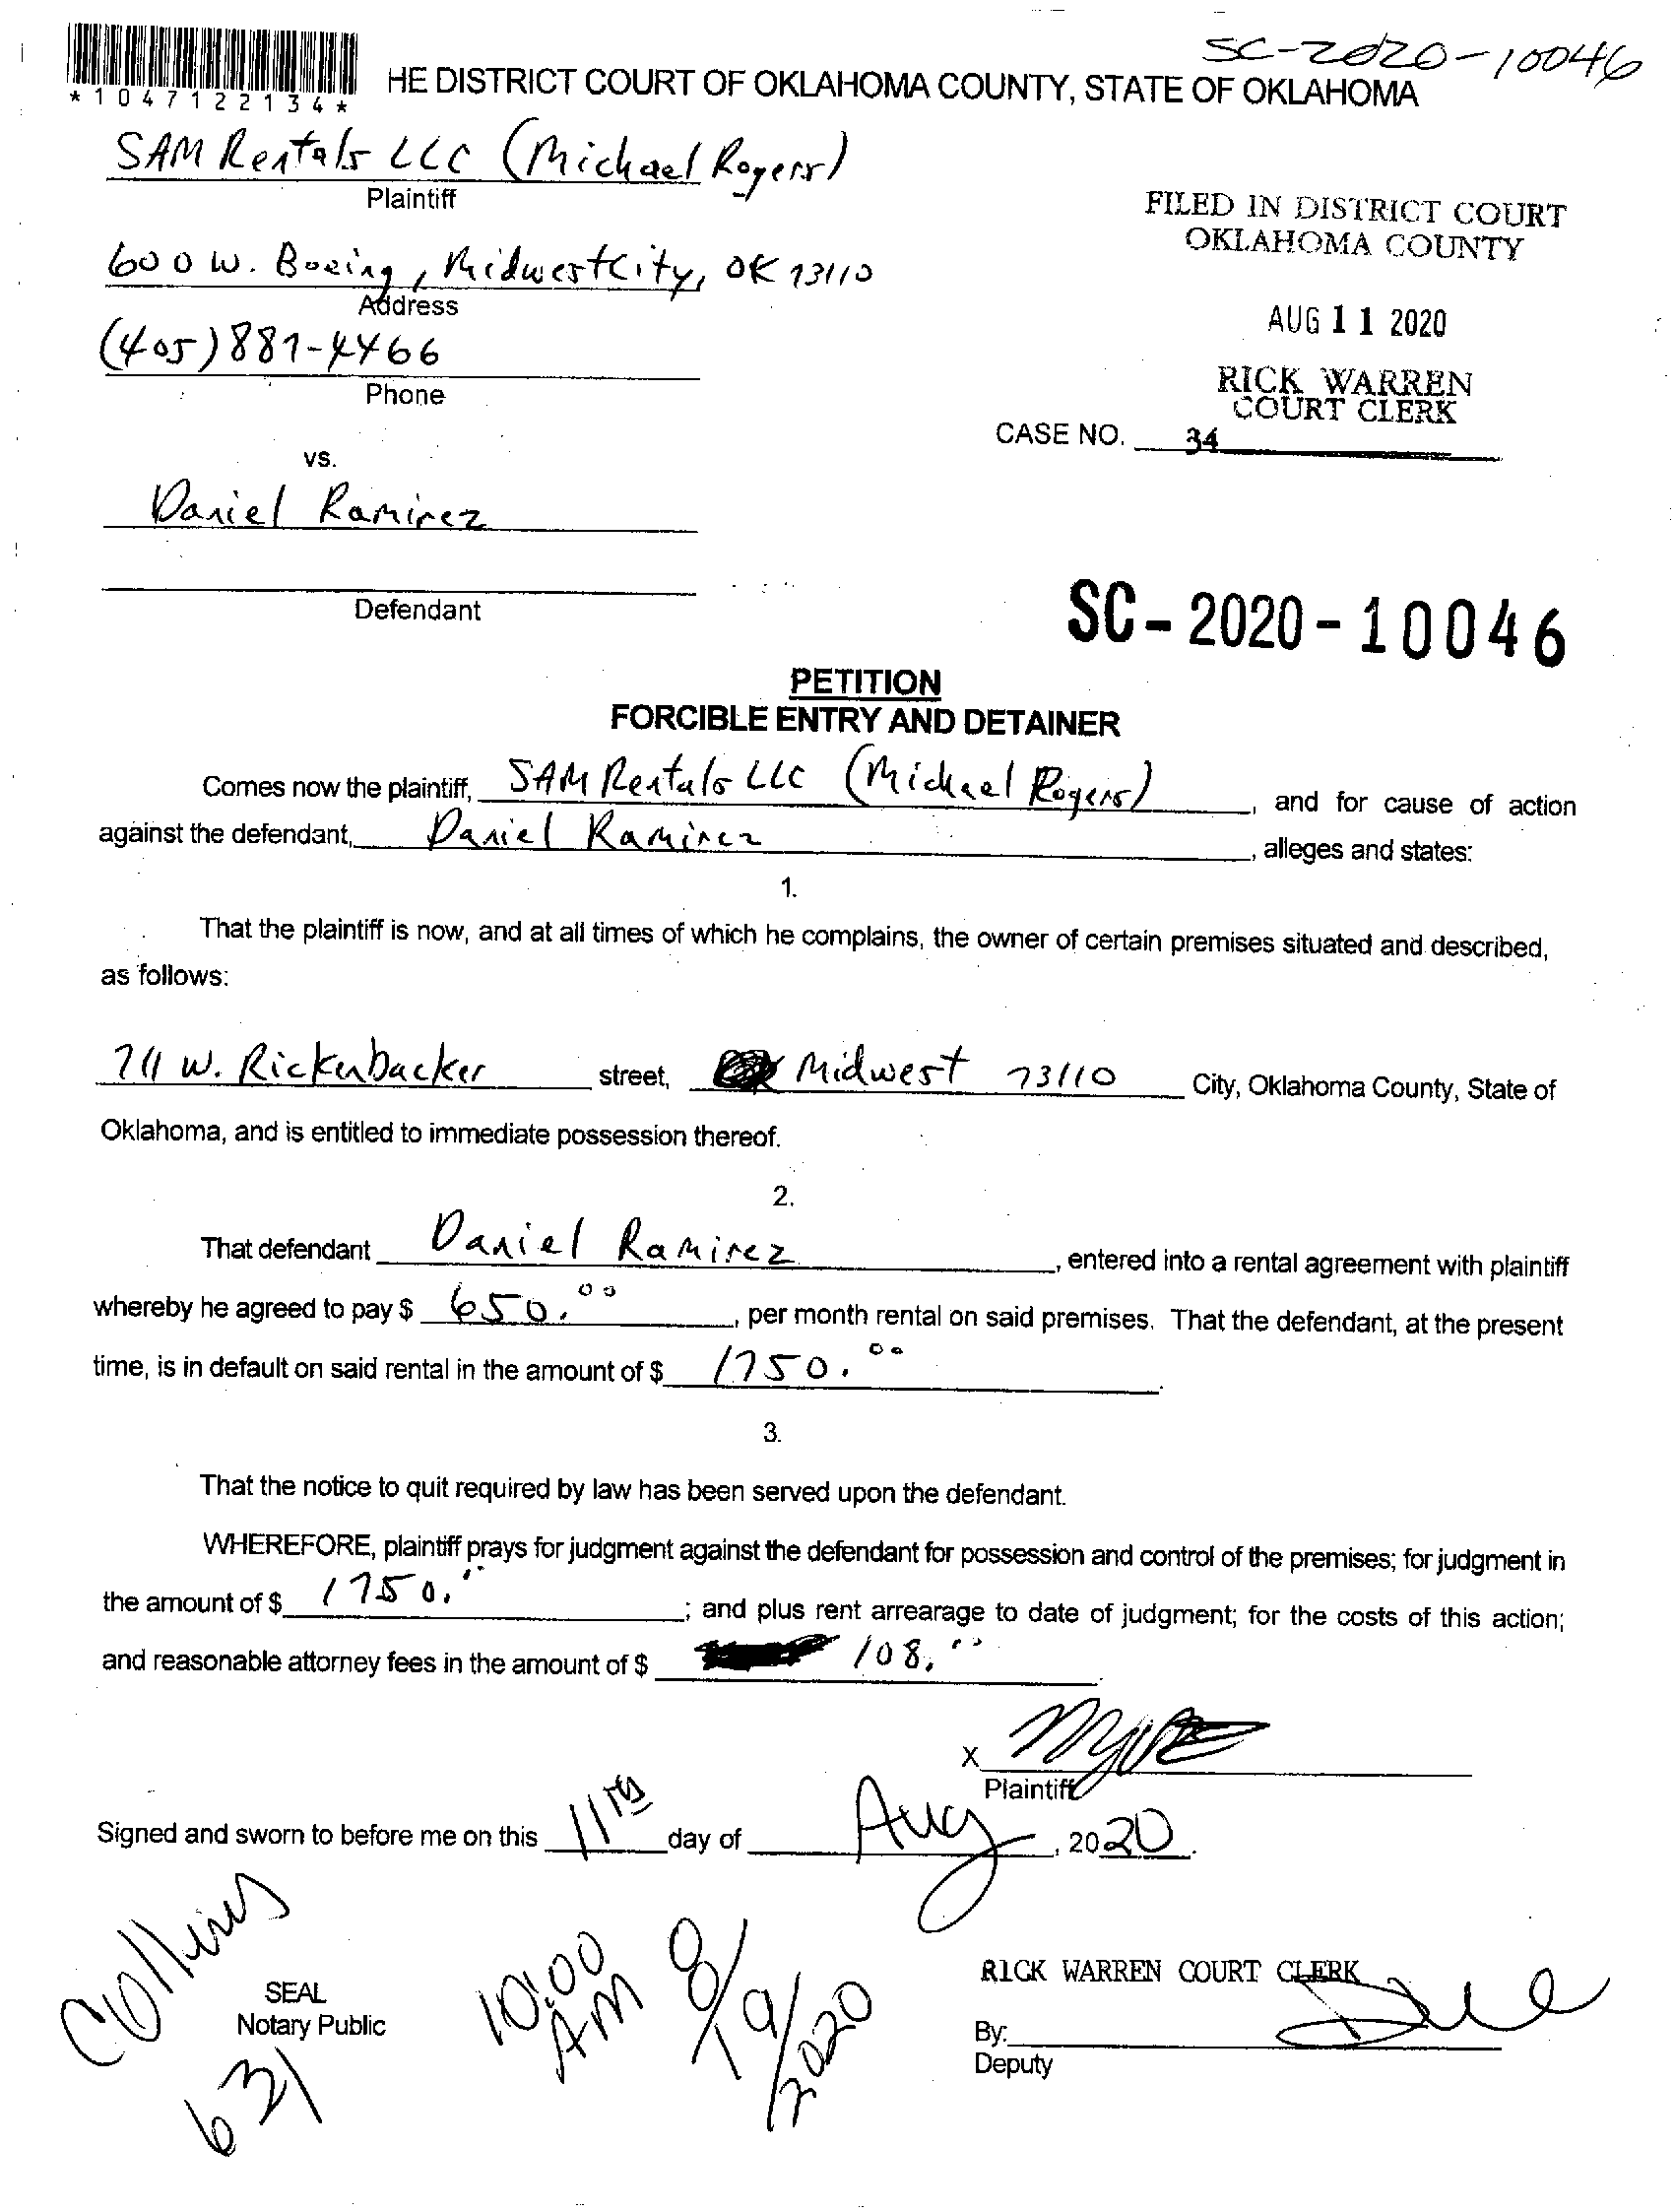 SC-2020-10046
*1047122134*
HE DISTRICT COURT OF OKLAHOMA COUNTY, STATE OF OKLAHOMA
SAM Rentals LLC (Michael Rogers)
Plaintiff
FILED IN DISTRICT COURT
OKLAHOMA COUNTY
600 W. Boeing, Midwest City, OK 73110
Address
AUG 11 2020
(405) 881-4466
Phone
RICK WARREN
COURT CLERK
CASE NO. 34
vs.
Daniel Ramirez
Defendant
SC-2020-10046
PETITION
FORCIBLE ENTRY AND DETAINER
Comes now the plaintiff, SAM Rentals LLC (Michael Rogers), and for cause of action
against the defendant, Daniel Ramirez, alleges and states:
1.
That the plaintiff is now, and at all times of which he complains, the owner of certain premises situated and described,
as follows:
711 W. Rickenbacker street, Midwest 73110 City, Oklahoma County, State of
Oklahoma, and is entitled to immediate possession thereof.
2.
That defendant Daniel Ramirez, entered into a rental agreement with plaintiff
whereby he agreed to pay $ 650.00, per month rental on said premises. That the defendant, at the present
time, is in default on said rental in the amount of $ 1750.00.
3.
That the notice to quit required by law has been served upon the defendant.
WHEREFORE, plaintiff prays for judgment against the defendant for possession and control of the premises; for judgment in
the amount of $ 1750.00; and plus rent arrearage to date of judgment; for the costs of this action;
and reasonable attorney fees in the amount of $ 108.00.
X
Plaintiff
Signed and sworn to before me on this 11th day of Aug, 2020.
Collins
631
SEAL
Notary Public
10:00
AM
8/19/2020
RICK WARREN COURT CLERK
By:
Deputy